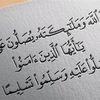 الله وملئكته يصلون ع
يأيها الذين ءامنوا
وا عليه وسلموا تسليما